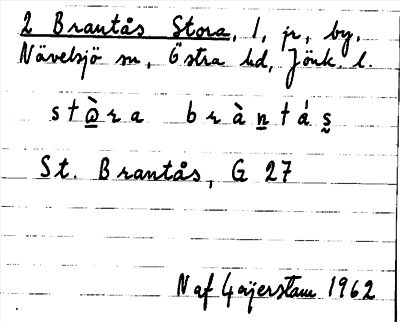 2 Brantås Stora, 1, jr, by,
Nävelsjö sn, Östra hd, Jönk. l.
st<u>à</u>ra bràn̲tás̰
St. Brantås, G 27
N af Gaijerstam 1962